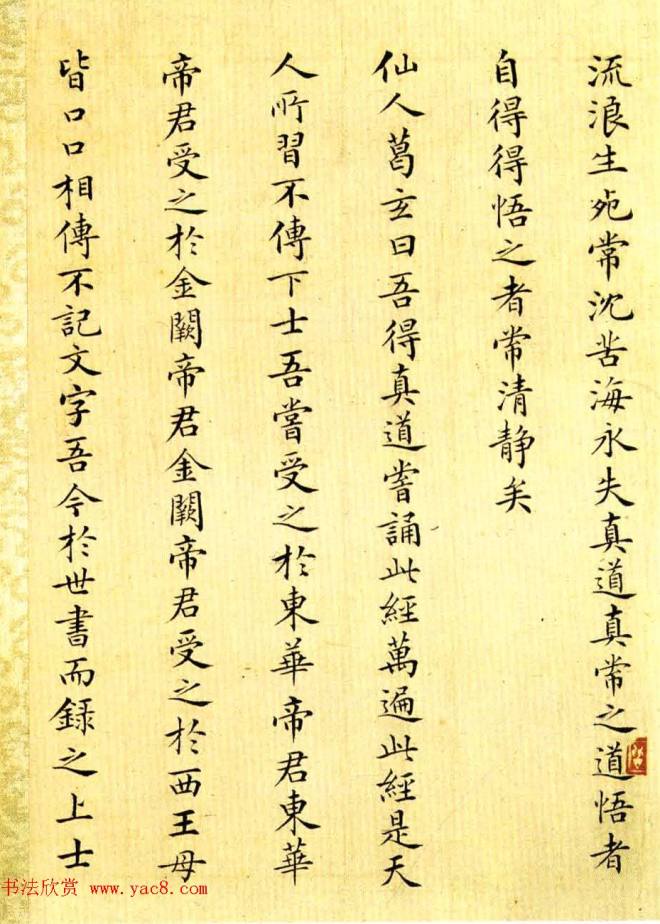 流浪生死常沈苦海永失真道真常之道悟者
自得得悟之者常清静矣
仙人葛玄曰吾得真道嘗誦此經萬遍此經是天
人所習不傳下士吾嘗受之於東華帝君東華
帝君受之於金闕帝君金闕帝君受之於西王母
皆口口相傳不記文字吾今於世書而錄之上士
书法欣赏 www.yac8.com